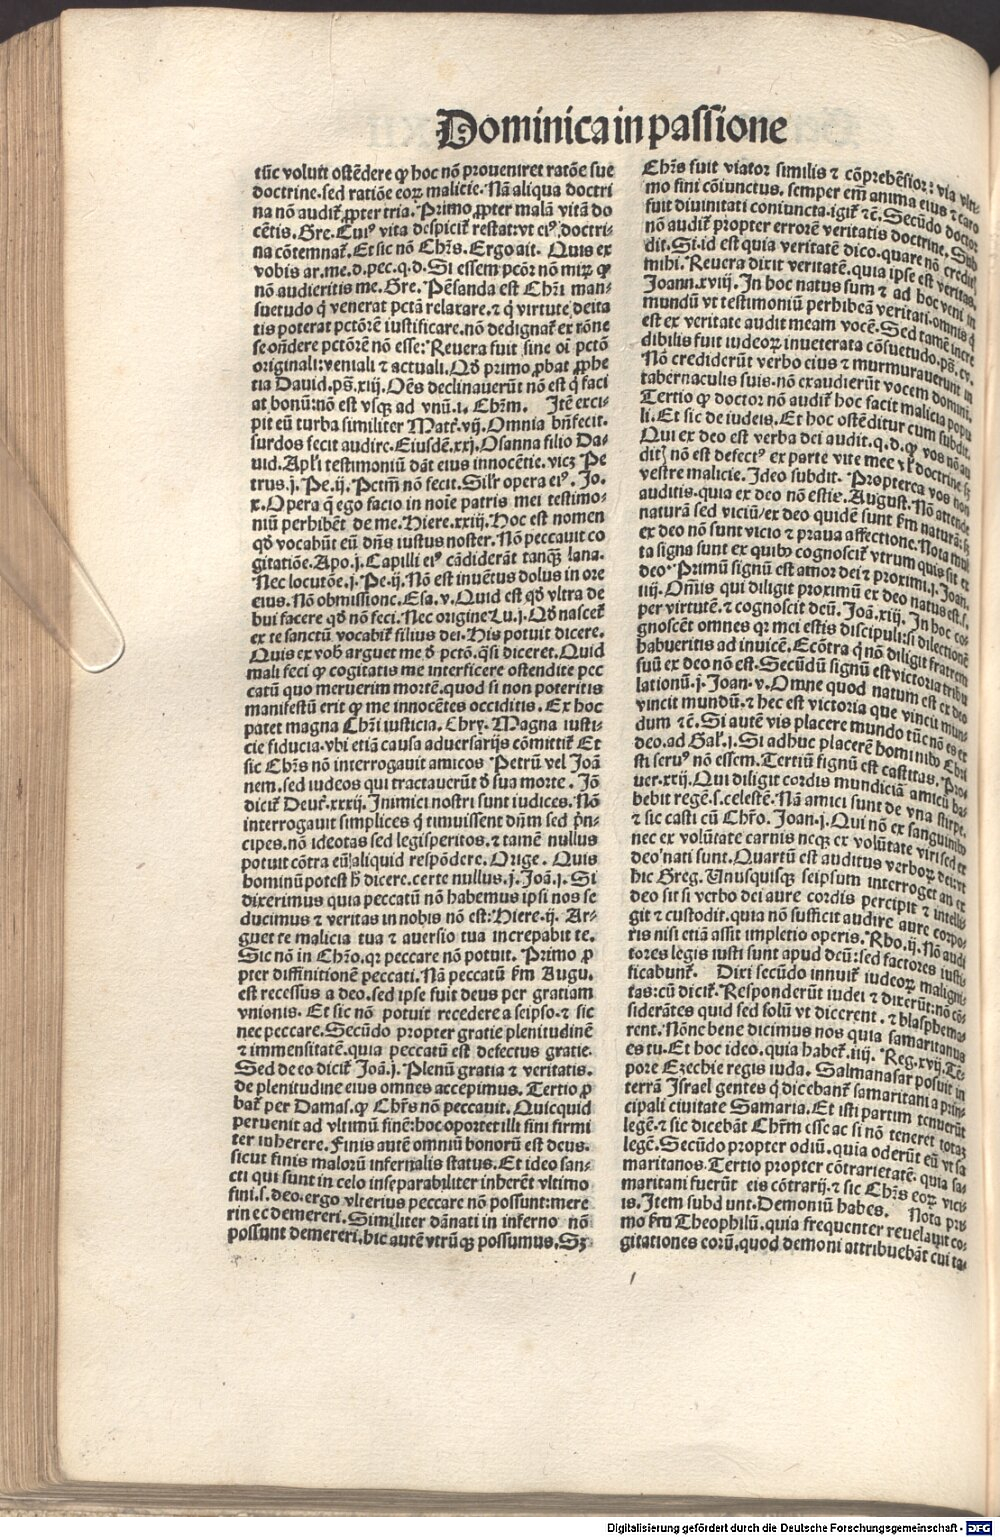 Dominica in passione
tūc voluit ostēdere ꝙ hoc nō proveniret ratōe sue
doctrine. sed ratiōe eoꝝ malicie. Nā aliqua doctri
na nō audiť ꝓpter tria. Primo ꝓpter malā vitā do
cētis. Gre. Cuiꝰ vita despiciť restat: vt eiꝰ doctri-
na cōtemnať. Et sic nō Chr̄s. Ergo ait. Quis ex
vobis ar. me. d. pec. q. d. Si essem pcōr nō miꝝ ꝙ
nō audieritis me. Gre. Pēsanda est Chr̄i man-
suetudo q̄ venerat pctā relaxare. ⁊ q̄ virtute deita
tis poterat pctōrē iustificare. nō dedignať ex rōne
se oñdere pctōrē nō esse: Revera fuit sine oī pctō
originali: veniali ⁊ actuali. Qd̄ primo ꝓbat ꝓphe
tia David. ps̄. xiij. Oēs declinaverūt nō est q̄ faci
at bonū: nō est vsqꝫ ad vnū. i. Chr̄m. Itē exci-
pit eū turba similiter Matť. vij. Omnia bn̄ fecit.
surdos fecit audire. Eiusdē. xxj. Osanna filio Da-
uid. Apl'i testimoniū dāt eius innocētie. vicꝫ Pe
trus. j. Pe. ij. Pctm̄ nō fecit. Sil'r opera eiꝰ. Jo.
x. Opera q̄ ego facio in noīe patris mei testimo-
niū perhibēt de me. Hiere. xxiij. Hoc est nomen
qd̄ vocabūt eū dn̄s iustus noster. Nō peccauit co
gitatiōe. Apo. j. Capilli eiꝰ cādiderāt tanqꝫ lana.
Nec locutōe. j. Pe. ij. Nō est inuētus dolus in ore
eius. Nō obmissione. Esa. v. Quid est qd̄ vltra de
bui facere qd̄ nō feci. Nec origine Lu. j. Qd̄ nasceť
ex te sanctū vocabiť filius dei. His potuit dicere.
Quis ex vob̄ arguet me d̄ pctō. q̄si diceret. Quid
mali feci ꝙ cogitatis me interficere ostendite pec
catū quo meruerim mortē. quod si non poteritis
manifestū erit ꝙ me innocētes occiditis. Ex hoc
patet magna Chr̄i iusticia. Chry. Magna iusti-
cie fiducia. vbi etiā causa adversarijs cōmittiť Et
sic Chr̄s nō interrogavit amicos Petrū vel Joā
nem. sed iudeos qui tractaverūt d̄ sua morte. Jō
diciť Deuť. xxxij. Inimici nostri sunt iudices. Nō
interrogavit simplices q̄ timuissent dn̄m sed p̄n-
cipes. nō ideotas sed legisperitos. ⁊ tamē nullus
potuit cōtra eū aliquid respōdere. Orige. Quis
hominū potest h̄ dicere. certe nullus. j. Joā. j. Si
dixerimus quia peccatū nō habemus ipsi nos se
ducimus ⁊ veritas in nobis nō est: Hiere. ij. Ar-
guet te malicia tua ⁊ aversio tua increpabit te.
Sic nō in Chr̄o. qr peccare nō potuit. Primo ꝓ
pter diffinitionē peccati. Nā peccatū fm̄ Augu.
est recessus a deo. sed ipse fuit deus per gratiam
vnionis. Et sic nō potuit recedere a seipso. ⁊ sic
nec peccare. Secūdo propter gratie plenitudinē
⁊ immensitatē. quia peccatū est defectus gratie.
Sed de eo diciť Joā. j. Plenū gratia ⁊ veritatis.
de plenitudine eius omnes accepimus. Tertio ꝓ
bať per Damas. ꝙ Chr̄s nō peccavit. Quicquid
pervenit ad vltimū finē: hoc oportet illi fini firmi
ter inherere. Finis autē omniū bonorū est deus.
sicut finis malorū infernalis status. Et ideo san-
cti qui sunt in celo inseparabiliter inherēt vltimo
fini. s. deo. ergo vlterius peccare nō possunt: mere
ri nec demereri. Similiter dānati in inferno nō
possunt demereri. hic autē vtrūqꝫ possumus. Sꝫ
Chr̄s fuit viator similis ⁊ cōprehēsior: via vlti-
mo fini cōiunctus. semper em̄ anima eius ⁊ caro
fuit divinitati coniuncta. igiť ⁊c̄. Secūdo doctor
nō audiť propter errorē veritatis doctrine. Sub
dit. Si id est quia veritatē dico. quare nō crediť
mihi. Revera dixit veritatē. quia ipse est veritas.
Joann. xviij. In hoc natus sum ⁊ ad hoc veni in
mundū vt testimoniū perhibeā veritati. omnis q̄
est ex veritate audit meam vocē. Sed tamē incre
dibilis fuit iudeoꝝ inveterata cōsuetudo. ps̄. cv.
Nō crediderūt verbo eius ⁊ murmuraverunt in
tabernaculis suis. nō exaudierūt vocem domini.
Tertio ꝙ doctor nō audiť hoc facit malicia popu
li. Et sic de iudeis. Et hoc ostēditur cum subdit.
Qui ex deo est verba dei audit. q. d. ꝙ vos nō au
diť nō est defectꝰ ex parte vite mee vl' doctrine sꝫ
vestre malicie. Ideo subdit. Propterea vos non
auditis. quia ex deo nō estis. August. Nō attende
naturā sed viciū/ ex deo quidē sunt fm̄ naturā: sꝫ
ex deo nō sunt vicio ⁊ prava affectione. Nota mul
ta signa sunt ex quibꝰ cognosciť vtrum quis sit ex
deo. Primū signū est amor dei ⁊ proximi. j. Joan.
iiij. Om̄is qui diligit proximū ex deo natus est. s.
per virtutē. ⁊ cognoscit deū. Joā. xiij. In hoc co-
gnoscēt omnes qr mei estis discipuli: si dilectionē
habueritis ad invicē. Ecōtra q̄ nō diligit fratrem
suū ex deo nō est. Secūdū signū est victoria tribu
lationū. j. Joan. v. Omne quod natum est ex deo
vincit mundū. ⁊ hec est victoria que vincit mun-
dum ⁊c̄. Si autē vis placere mundo tūc nō es ex
deo. ad Gal'. j. Si adhuc placerē hominibꝰ Chri
sti seruꝰ nō essem. Tertiū signū est castitas. Pro-
uer. xxij. Qui diligit cordis mundiciā amicū ha-
bebit regē. s. celestē. Nā amici sunt de vna stirpe.
⁊ sic casti cū Chr̄o. Joan. j. Qui nō ex sanguinibꝰ
nec ex volūtate carnis neqꝫ ex volūtate viri sed ex
deo nati sunt. Quartū est auditus verboꝝ dei: vt
hic Greg. Unusquisqꝫ seipsum interroget an ex
deo sit si verbo dei aure cordis percipit ⁊ intelli-
git ⁊ custodit. quia nō sufficit audire aure corpo-
ris nisi etiā assit impletio operis. Rho. ij. Nō audi
tores legis iusti sunt apud deū: sed factores iusti-
ficabunť. Dixi secūdo innuiť iudeoꝝ maligni-
tas: cū diciť. Responderūt iudei ⁊ dixerūt: nō cō-
siderātes quid sed solū vt dicerent. ⁊ blasphema-
rent. Nōne bene dicimus nos quia samaritanus
es tu. Et hoc ideo. quia habeť. iiij. Reg. xvij. Tē-
pore Ezechie regis iuda. Salmanasar posuit in
terrā Israel gentes q̄ dicebanť samaritani a prin-
cipali civitate Samaria. Et isti partim tenuerūt
legē. ⁊ sic dicebāt Chr̄m esse ac si nō teneret totaꝫ
legē. Secūdo propter odiū. quia oderūt eū vt sa
maritanos. Tertio propter cōtrarietatē. quia sa-
maritani fuerūt eis cōtrarij. ⁊ sic Chr̄s eoꝝ vici-
is. Item subdunt. Demoniū habes. Nota pri-
mo fm̄ Theophilū. quia frequenter revelavit co-
gitationes eorū. quod demoni attribuebāt cui ta-
Digitalisierung gefördert durch die Deutsche Forschungsgemeinschaft - DFG